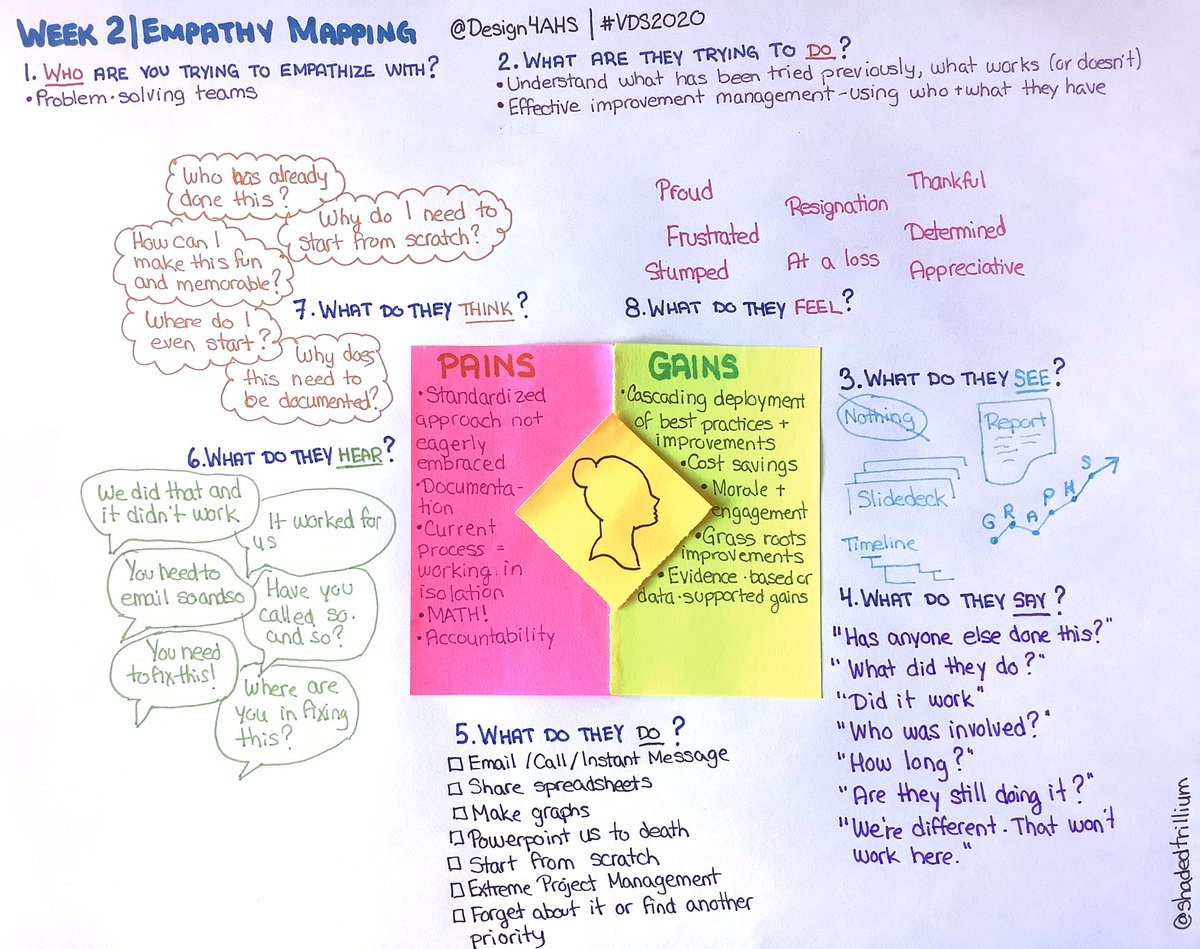 WEEK 2 | EMPATHY MAPPING @Design4AHS | #VDS2020
1. WHO ARE YOU TRYING TO EMPATHIZE WITH?
• Problem-solving teams
2. WHAT ARE THEY TRYING TO DO?
• Understand what has been tried previously, what works (or doesn't)
• Effective improvement management - using who + what they have
Who has already
done this?
Why do I need to
start from scratch?
How can I
make this fun
and memorable?
Where do I
even start?
Why does
this need to
be documented?
7. WHAT DO THEY THINK?
Proud
Resignation
Thankful
Frustrated
At a loss
Determined
Stumped
Appreciative
8. WHAT DO THEY FEEL?
PAINS
• Standardized
approach not
eagerly
embraced
• Documenta-
tion
• Current
process =
working in
isolation
• MATH!
• Accountability
GAINS
• Cascading deployment
of best practices +
improvements
• Cost savings
• Morale +
engagement
• Grass roots
improvements
• Evidence-based or
data-supported gains
3. WHAT DO THEY SEE?
Nothing
Report
Slidedeck
GRAPHS
Timeline
4. WHAT DO THEY SAY?
"Has anyone else done this?"
"What did they do?"
"Did it work"
"Who was involved?"
"How long?"
"Are they still doing it?"
"We're different. That won't
work here."
6. WHAT DO THEY HEAR?
We did that and
it didn't work
It worked for
us
You need to
email so and so
Have you
called so-
and so?
You need
to fix this!
Where are
you in fixing
this?
5. WHAT DO THEY DO?
Email / Call / Instant Message
Share spreadsheets
Make graphs
Powerpoint us to death
Start from scratch
Extreme Project Management
Forget about it or find another
priority
@shadedtrillium